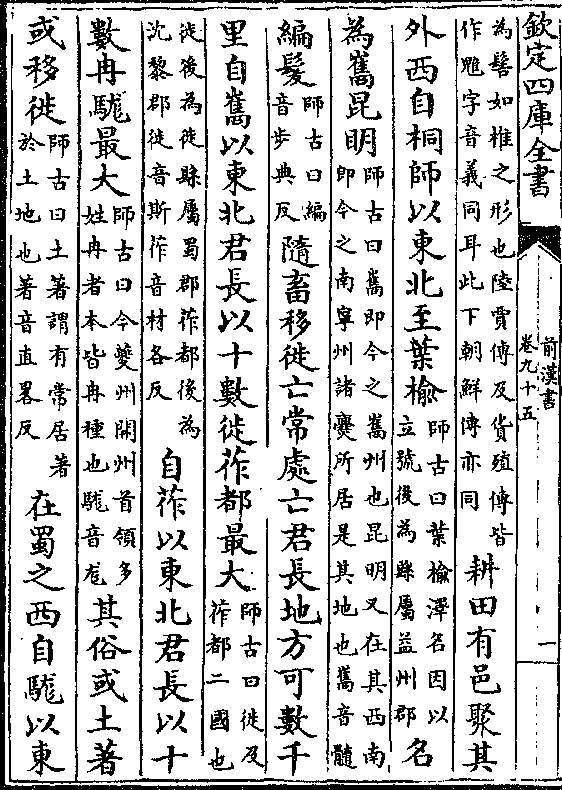 欽定四庫全書
前漢書
卷九十五
一
為髻如椎之形也陸賈傳及貨殖傳皆
作魋字音義同耳此下朝鮮傳亦同
耕田有邑聚其
外西自桐師以東北至葉榆
師古曰葉榆澤名因以
立號後為縣屬益州郡
名
為嶲昆明
師古曰嶲即今之嶲州也昆明又在其西南
即今之南寧州諸爨所居是其地也嶲音髓
編髮
師古曰編
音步典反
隨畜移徙亡常處亡君長地方可數千
里自嶲以東北君長以十數徙莋都最大
師古曰徙及
莋都二國也
徙後為徙縣屬蜀郡莋都後為
沈黎郡徙音斯莋音材各反
自莋以東北君長以十
數冉駹最大
師古曰今夔州開州首領多
姓冉者本皆冉種也駹音尨
其俗或土著
或移徙
師古曰土著謂有常居著
於土地也著音直畧反
在蜀之西自駹以東